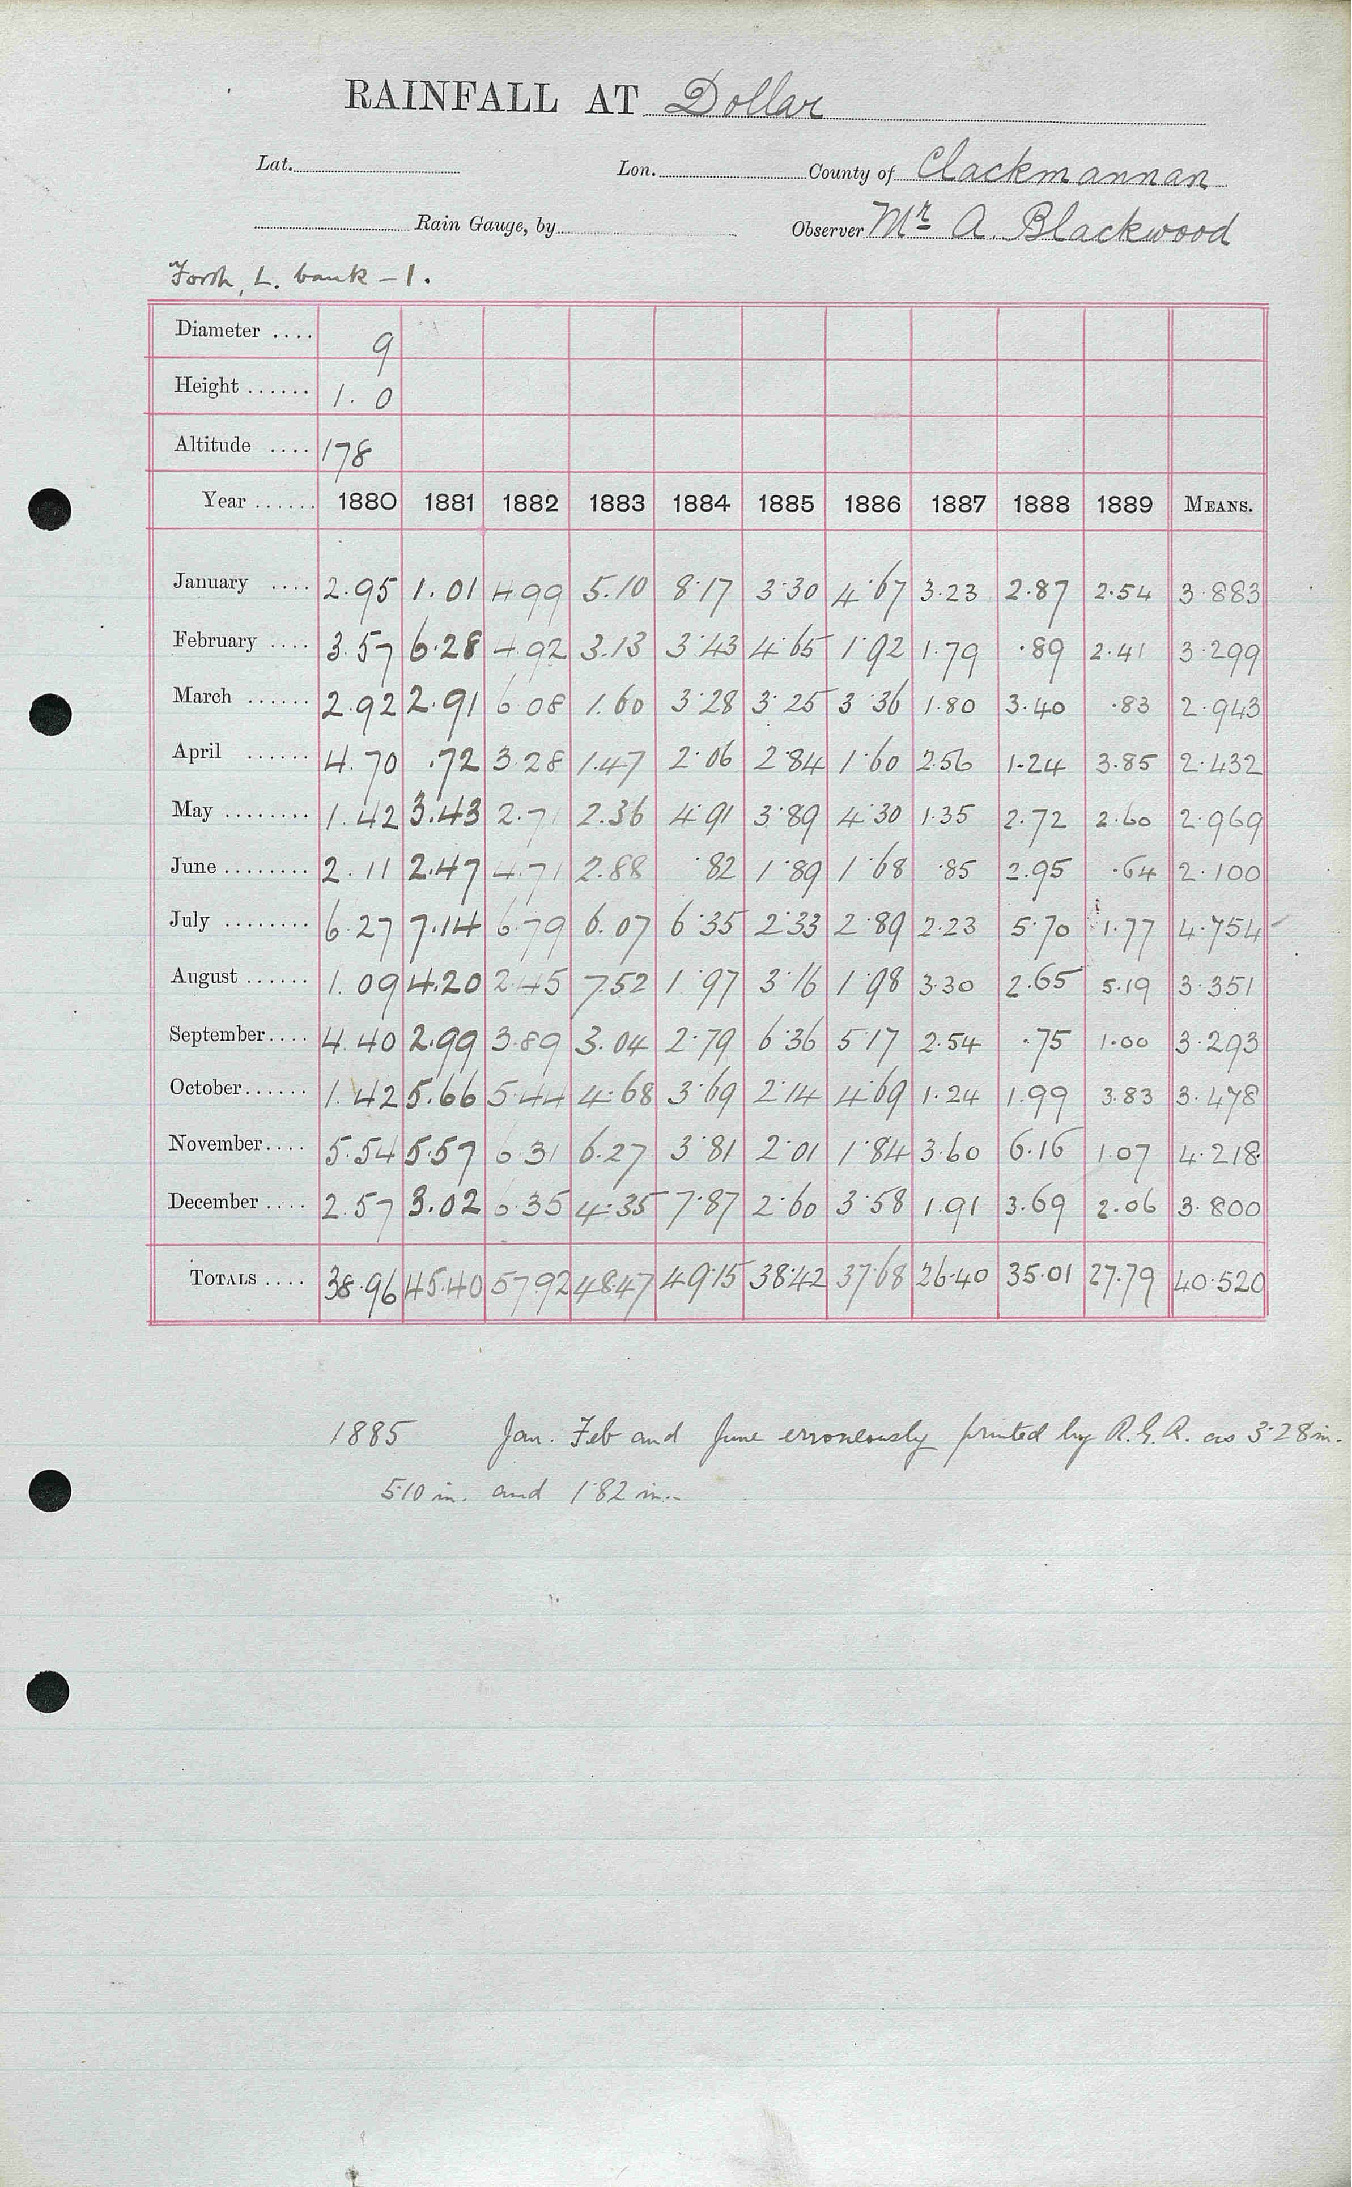 RAINFALL AT Dollar
Lat. Lon. County of Clackmannan
Rain Gauge, by Observer Mr A. Blackwood
Forth, L. bank - 1.
Diameter .... 9
Height ...... 1. 0
Altitude .... 178
Year ...... 1880 1881 1882 1883 1884 1885 1886 1887 1888 1889 MEANS.
January .... 2.95 1.01 4.99 5.10 8.17 3.30 4.67 3.23 2.87 2.54 3.883
February .... 3.57 6.28 4.92 3.13 3.43 4.65 1.92 1.79 .89 2.41 3.299
March ...... 2.92 2.91 6.08 1.60 3.28 3.25 3.36 1.80 3.40 .83 2.943
April ...... 4.70 .72 3.28 1.47 2.06 2.84 1.60 2.56 1.24 3.85 2.432
May ........ 1.42 3.43 2.71 2.36 4.91 3.89 4.30 1.35 2.72 2.60 2.969
June ........ 2.11 2.47 4.71 2.88 .82 1.89 1.68 .85 2.95 .64 2.100
July ........ 6.27 7.14 6.79 6.07 6.35 2.33 2.89 2.23 5.70 1.77 4.754
August ...... 1.09 4.20 2.45 7.52 1.97 3.16 1.98 3.30 2.65 5.19 3.351
September.... 4.40 2.99 3.89 3.04 2.79 6.36 5.17 2.54 .75 1.00 3.293
October...... 1.42 5.66 5.44 4.68 3.69 2.14 4.69 1.24 1.99 3.83 3.478
November.... 5.54 5.57 6.31 6.27 3.81 2.01 1.84 3.60 6.16 1.07 4.218
December .... 2.57 3.02 6.35 4.35 7.87 2.60 3.58 1.91 3.69 2.06 3.800
TOTALS .... 38.96 45.40 57.92 48.47 49.15 38.42 37.68 26.40 35.01 27.79 40.520
1885 Jan. Feb and June erroneously printed by R.G.R. as 3.28 in.
5.10 in. and 1.82 in.